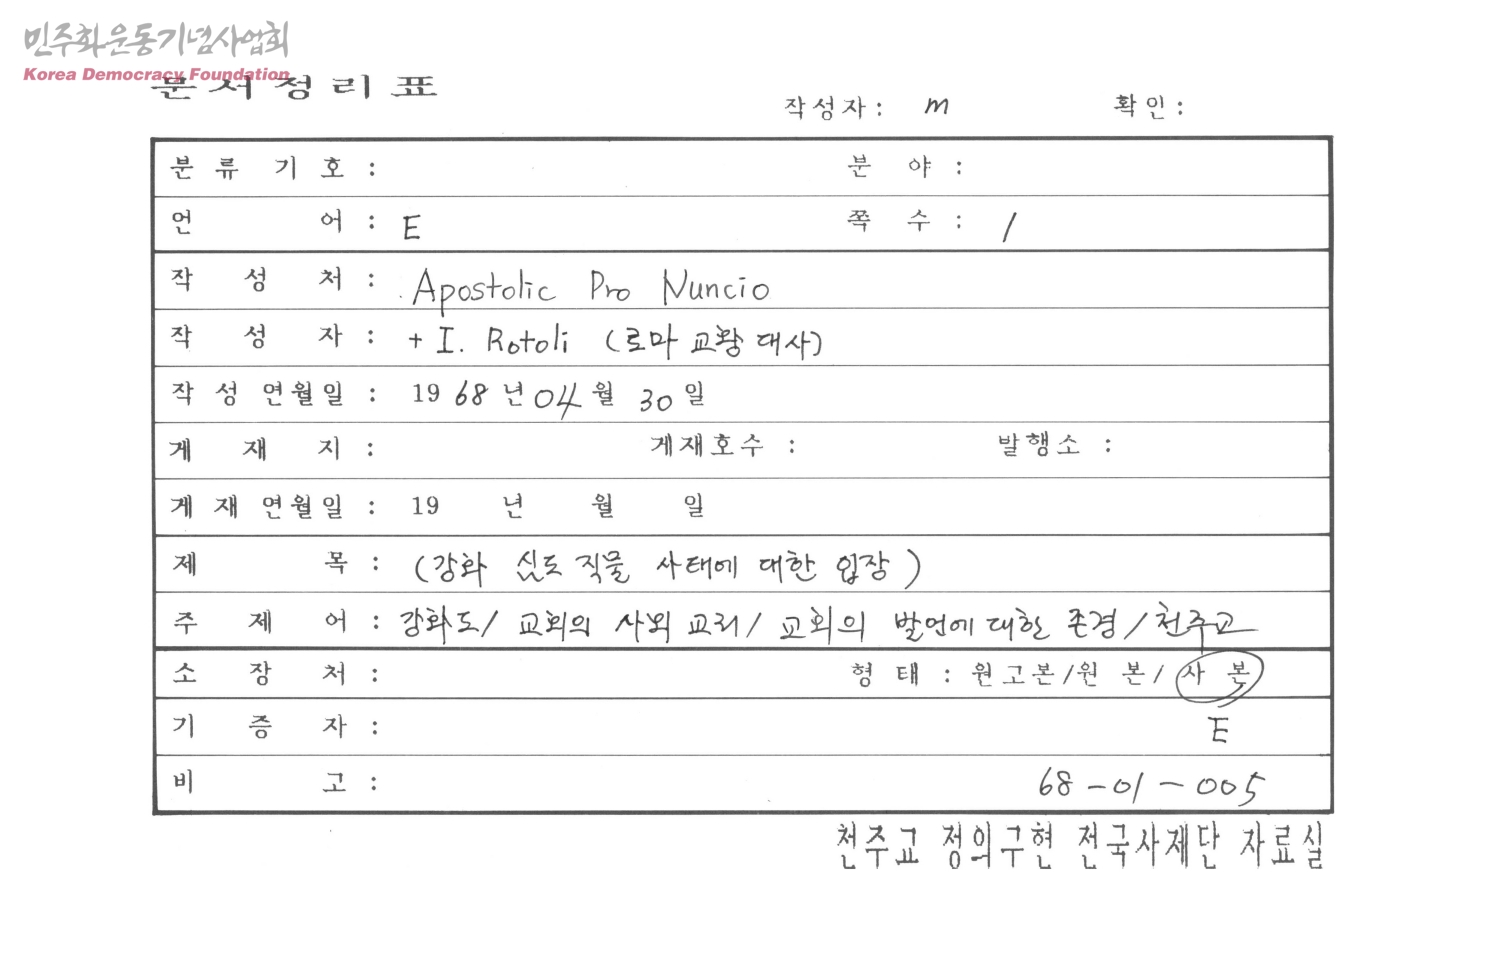 민주화운동기념사업회
Korea Democracy Foundation
문서정리표
작성자 : m 확인 :
분류 기호 : 분 야 :
언 어 : E 쪽 수 : 1
작 성 처 : Apostolic Pro Nuncio
작 성 자 : + I. Rotoli (로마 교황 대사)
작성 연월일 : 1968년 04월 30일
게 재 지 : 게재호수 : 발행소 :
게재 연월일 : 19 년 월 일
제 목 : (강화 심도 직물 사태에 대한 입장)
주 제 어 : 강화도/ 교회의 사회 교리/ 교회의 발언에 대한 존경/천주교
소 장 처 : 형 태 : 원고본/원 본/ 사 본
기 증 자 : E
비 고 : 68-01-005
천주교 정의구현 전국사제단 자료실